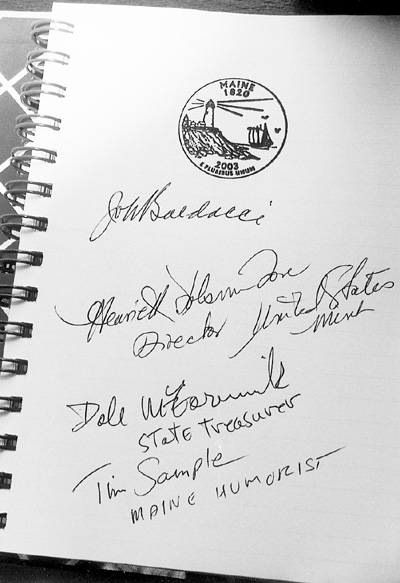 MAINE
1820
2003
E PLURIBUS UNUM
John Baldacci
Henrietta Holsman Fore
Director United States
Mint
Dale McCormick
State Treasurer
Tim Sample
MAINE HUMORIST